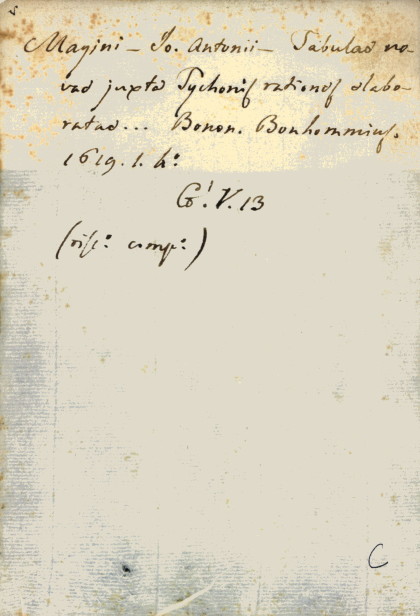 Magini - Jo. Antonii - Tabulae no-
vae juxta Tychonis rationes elabo-
ratae... Bonon. Bonhommius.
1619. 1. 4.º
G! V. 13
(vis.º comp.º)
C